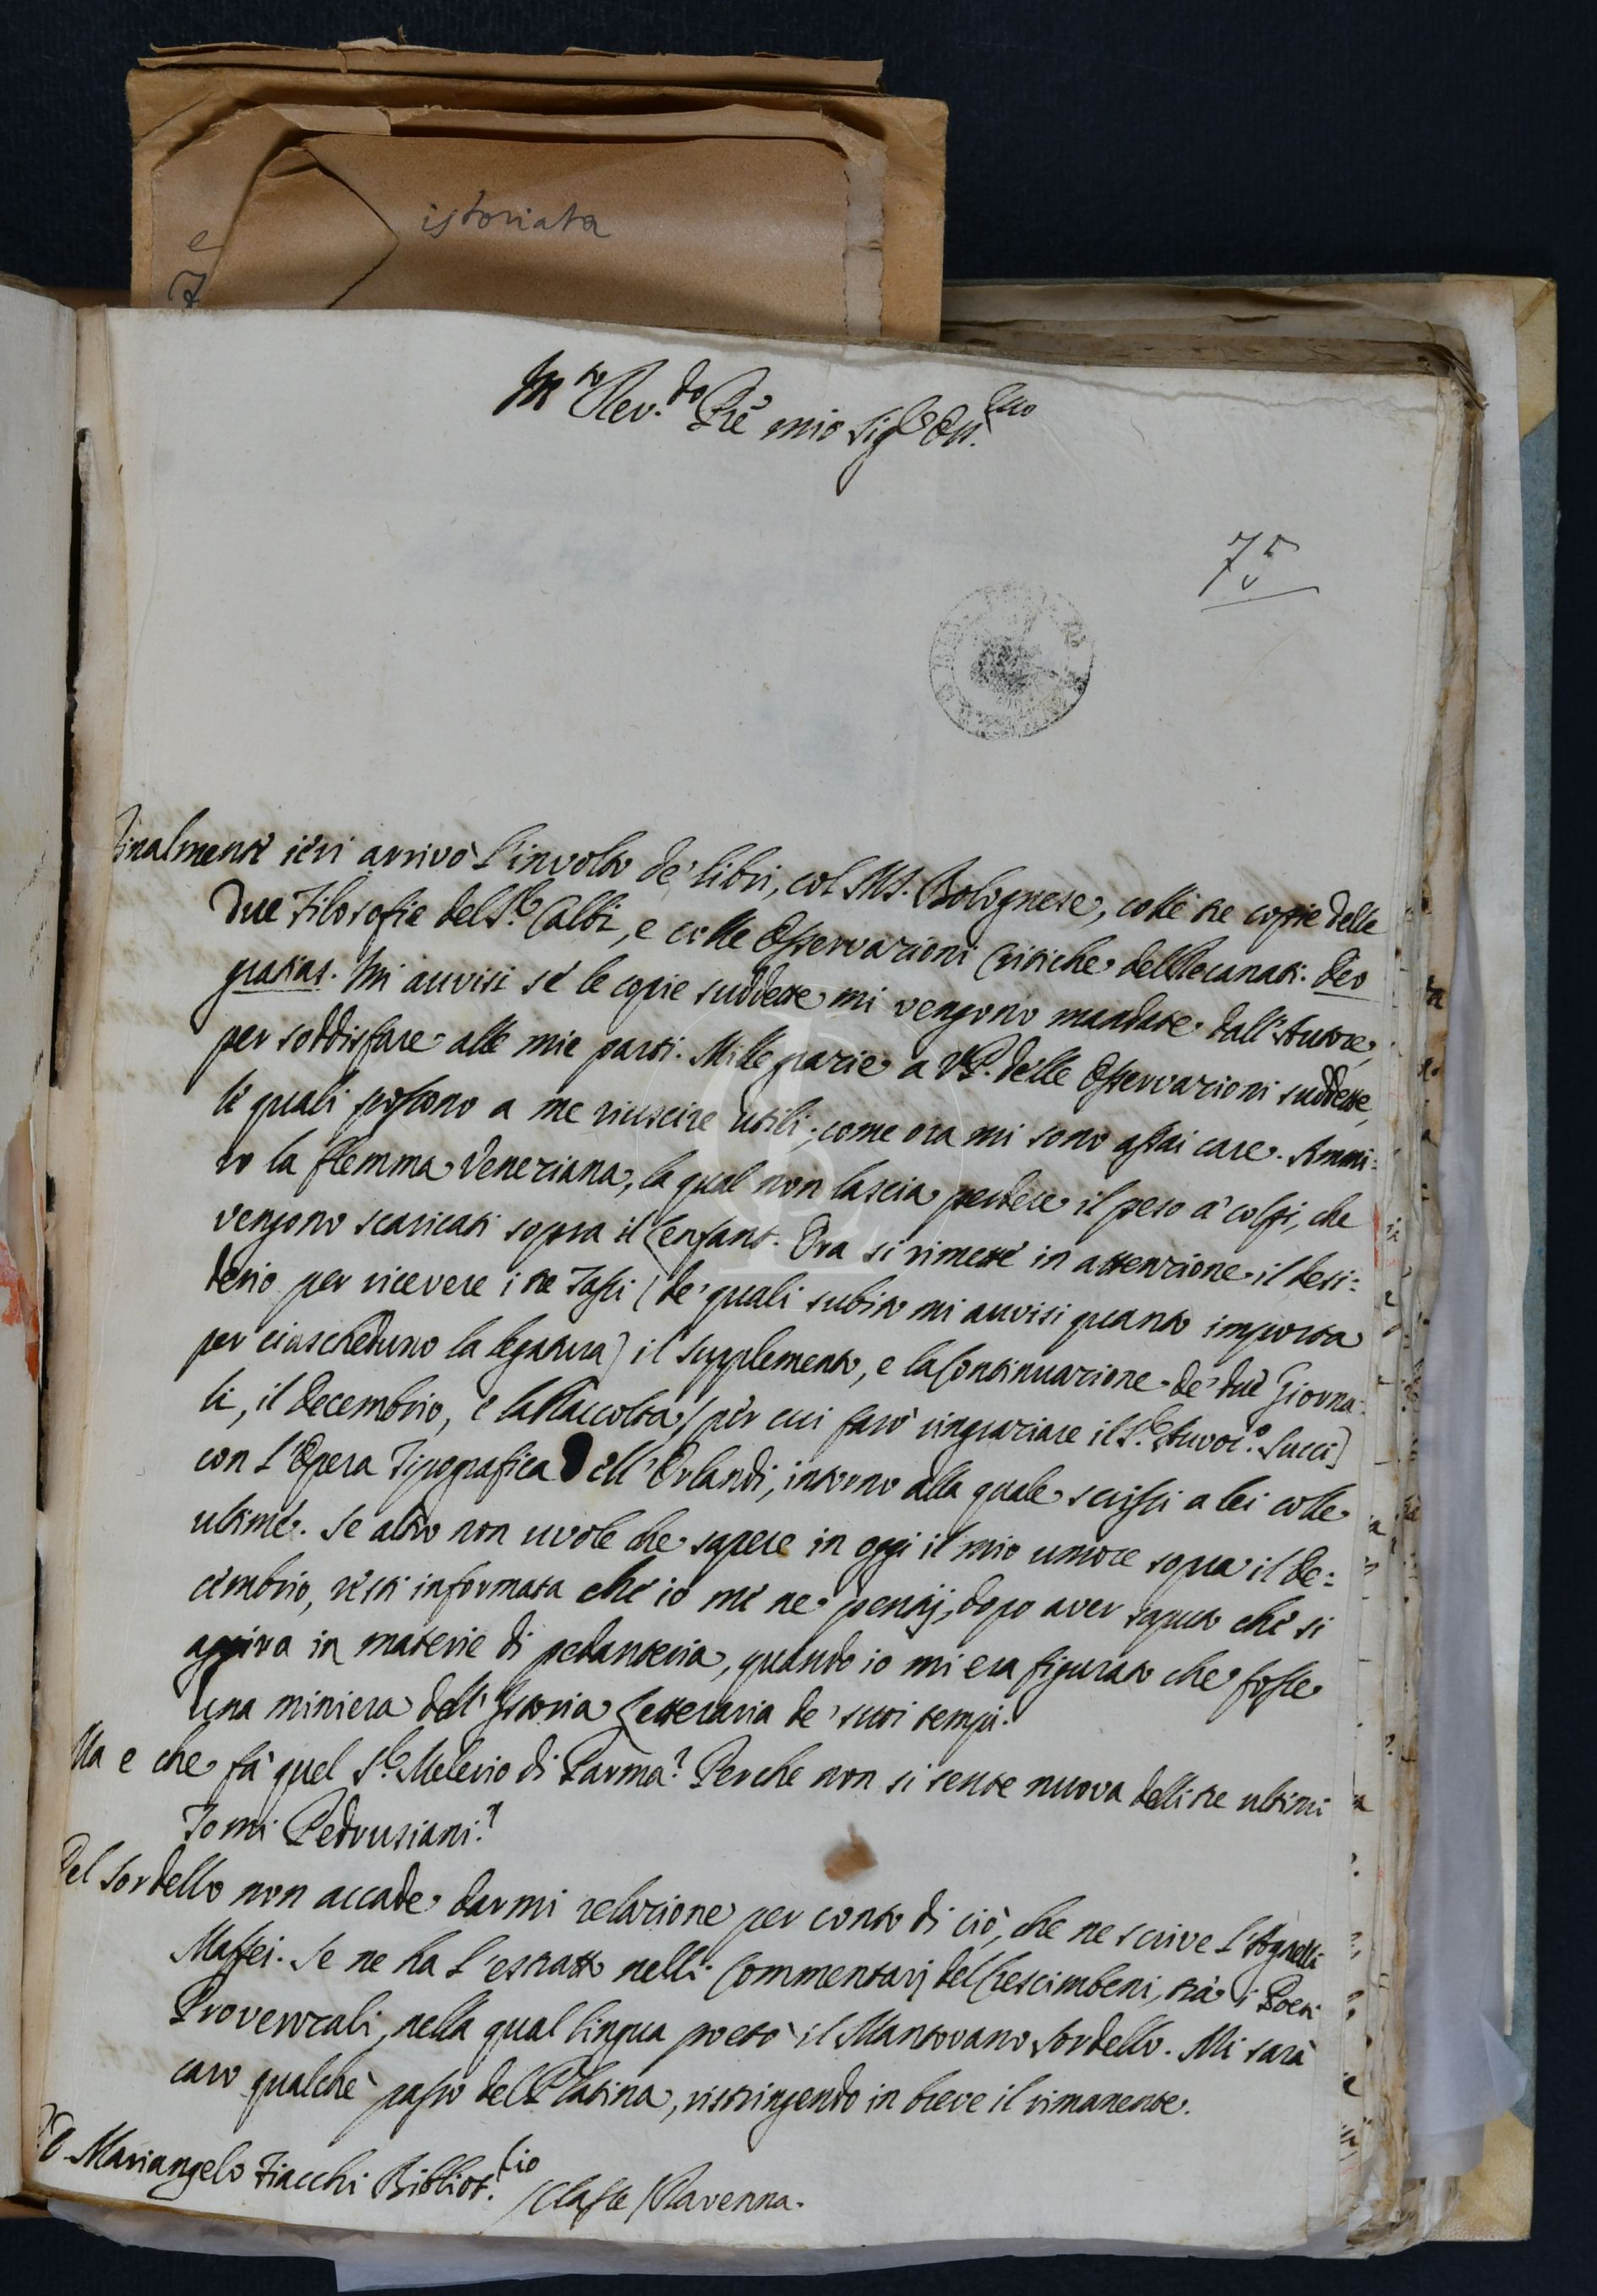 istoriata
e
M.to Rev.do Prê mio Sig.e Oss.
75
Finalmente ieri arrivò l'involto de' libri, col MS. Bolognese, colle tre copie delle
due Filosofie del S.r Calbi, e colle Osservazioni Critiche del Recanati. Deo
gratias. Mi auvisi se le copie suddette mi vengono mandate dall'Autore,
per soddisfare alle mie parti. Mille grazie a VP. delle Osservazioni suddette,
le quali possono a me riuscire utili, come ora mi sono assai care. Ammi:
ro la flemma Veneziana, la qual non lascia perdere il peso a' colpi, che
vengono scaricati sopra il Lenfant. Ora si rimette in attenzione il desi:
derio per ricevere i tre Tassi (de' quali subito mi auvisi quanto importa
per ciascheduno la legatura) il supplemento, e la Continuazione de' due Giorna:
li, il Decembrio, e la Raccolta (per cui farò ringraziare il S.r Auvoc.o Succi)
con l'Opera Tipografica dell'Orlandi, intorno alla quale scrissi a lei colle
ultime. Se altro non vuole che sapere in oggi il mio umore sopra il De:
cembrio, resti informata che io me ne pentij, dopo aver saputo che si
aggira in materie di pedanteria, quando io mi era figurato che fosse
una miniera dell'Istoria Letteraria de' suoi tempi.
Ma e che fà quel S.r Melerio di Parma? Perche non si sente nuova delli tre ultimi
Tomi Pedrusiani?
Del Sordello non accade darmi relazione per conto di ciò, che ne scrive l'Agnelli
Maffei. Se ne ha l'estratto nelli Commentarj del Crescimbeni, trà i Poeti
Provenzali, nella qual lingua poetò il Mantovano Sordello. Mi sarà
caro qualche passo del Platina, ristringendo in breve il rimanente.
Mariangelo Fiacchi Bibliot.rio /Classe/ Ravenna.